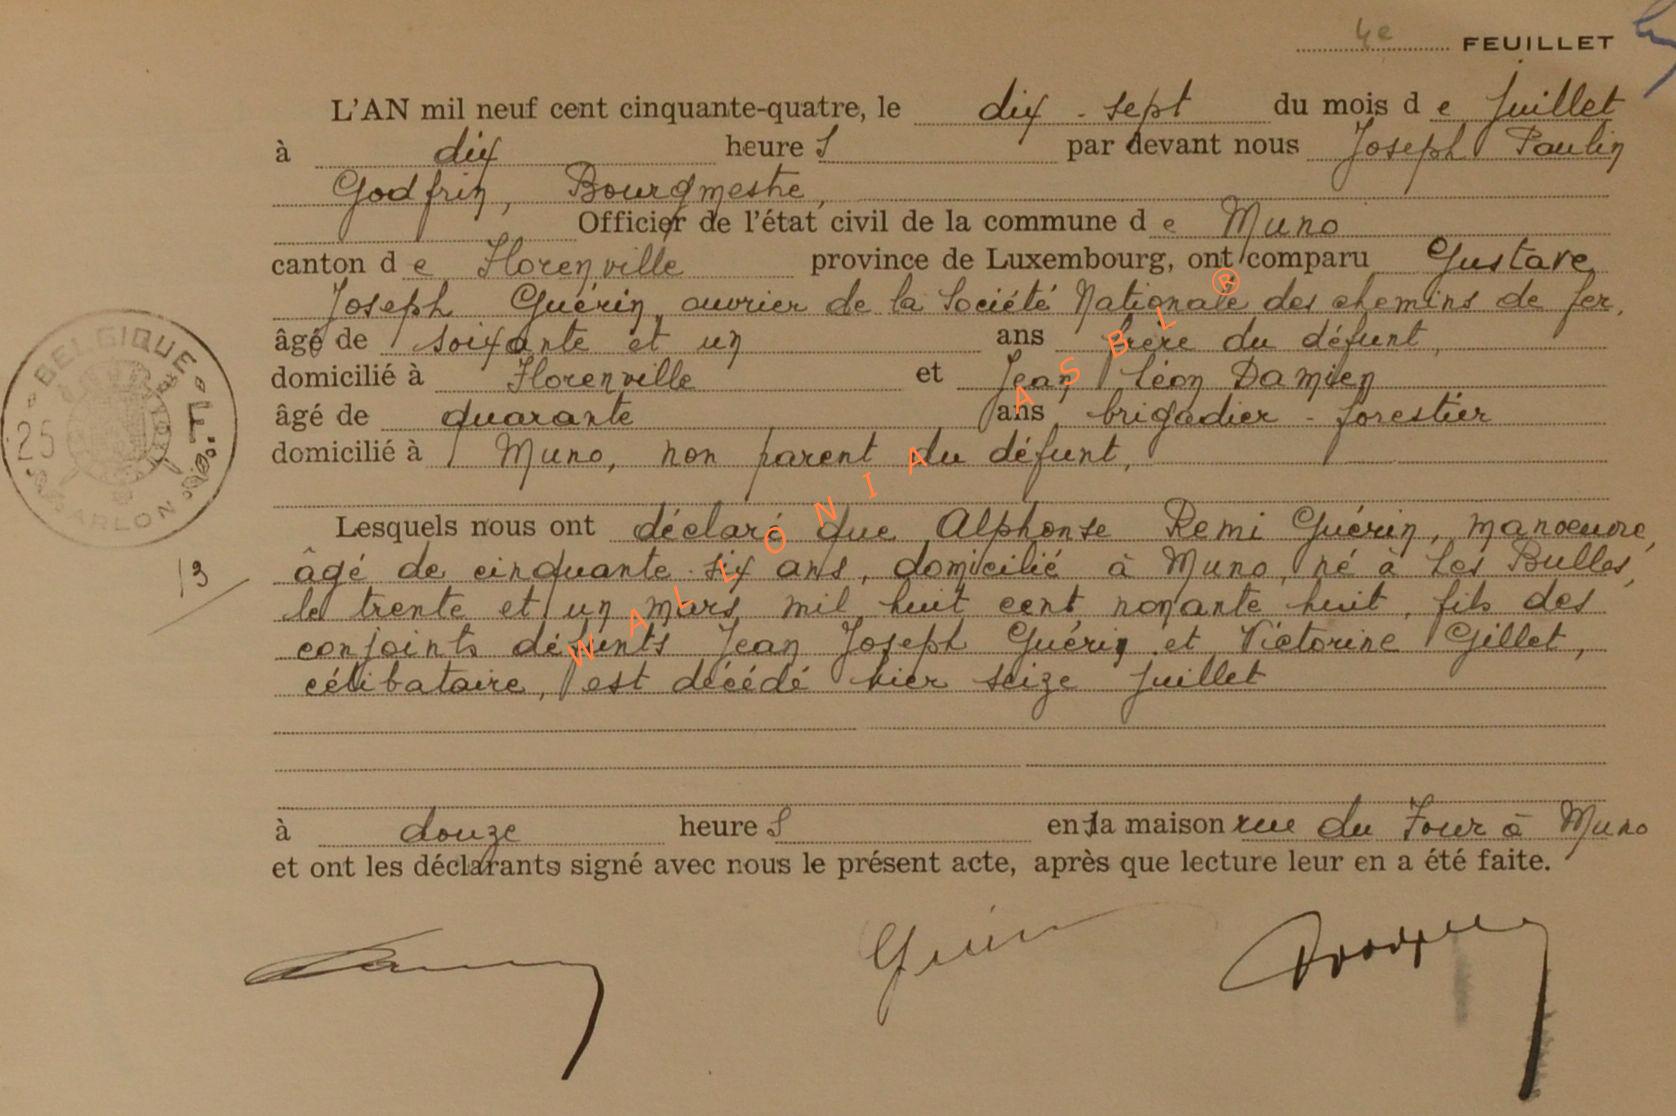 4e FEUILLET
L'AN mil neuf cent cinquante-quatre, le dix-sept du mois de Juillet
à dix heures par devant nous Joseph Paulin
Godfrin, Bourgmestre,
Officier de l'état civil de la commune de Muno
canton de Florenville province de Luxembourg, ont comparu Gustave
Joseph Guérin, ouvrier de la Société Nationale des chemins de fer,
âgé de soixante et un ans frère du défunt,
domicilié à Florenville et Jean Léon Damien
âgé de quarante ans brigadier-forestier
domicilié à Muno, non parent du défunt,
Lesquels nous ont déclaré que Alphonse Remi Guérin, manoeuvre,
âgé de cinquante-six ans, domicilié à Muno, né à Les Bulles,
le trente et un mars mil huit cent nonante huit, fils des
conjoints défunts Jean Joseph Guérin et Victorine Gillet,
célibataire, est décédé hier seize juillet
à douze heures en la maison rue du Four à Muno
et ont les déclarants signé avec nous le présent acte, après que lecture leur en a été faite.
BELGIQUE
25 F
ARLON
13
WALLONIA ASBL ®
Guérin